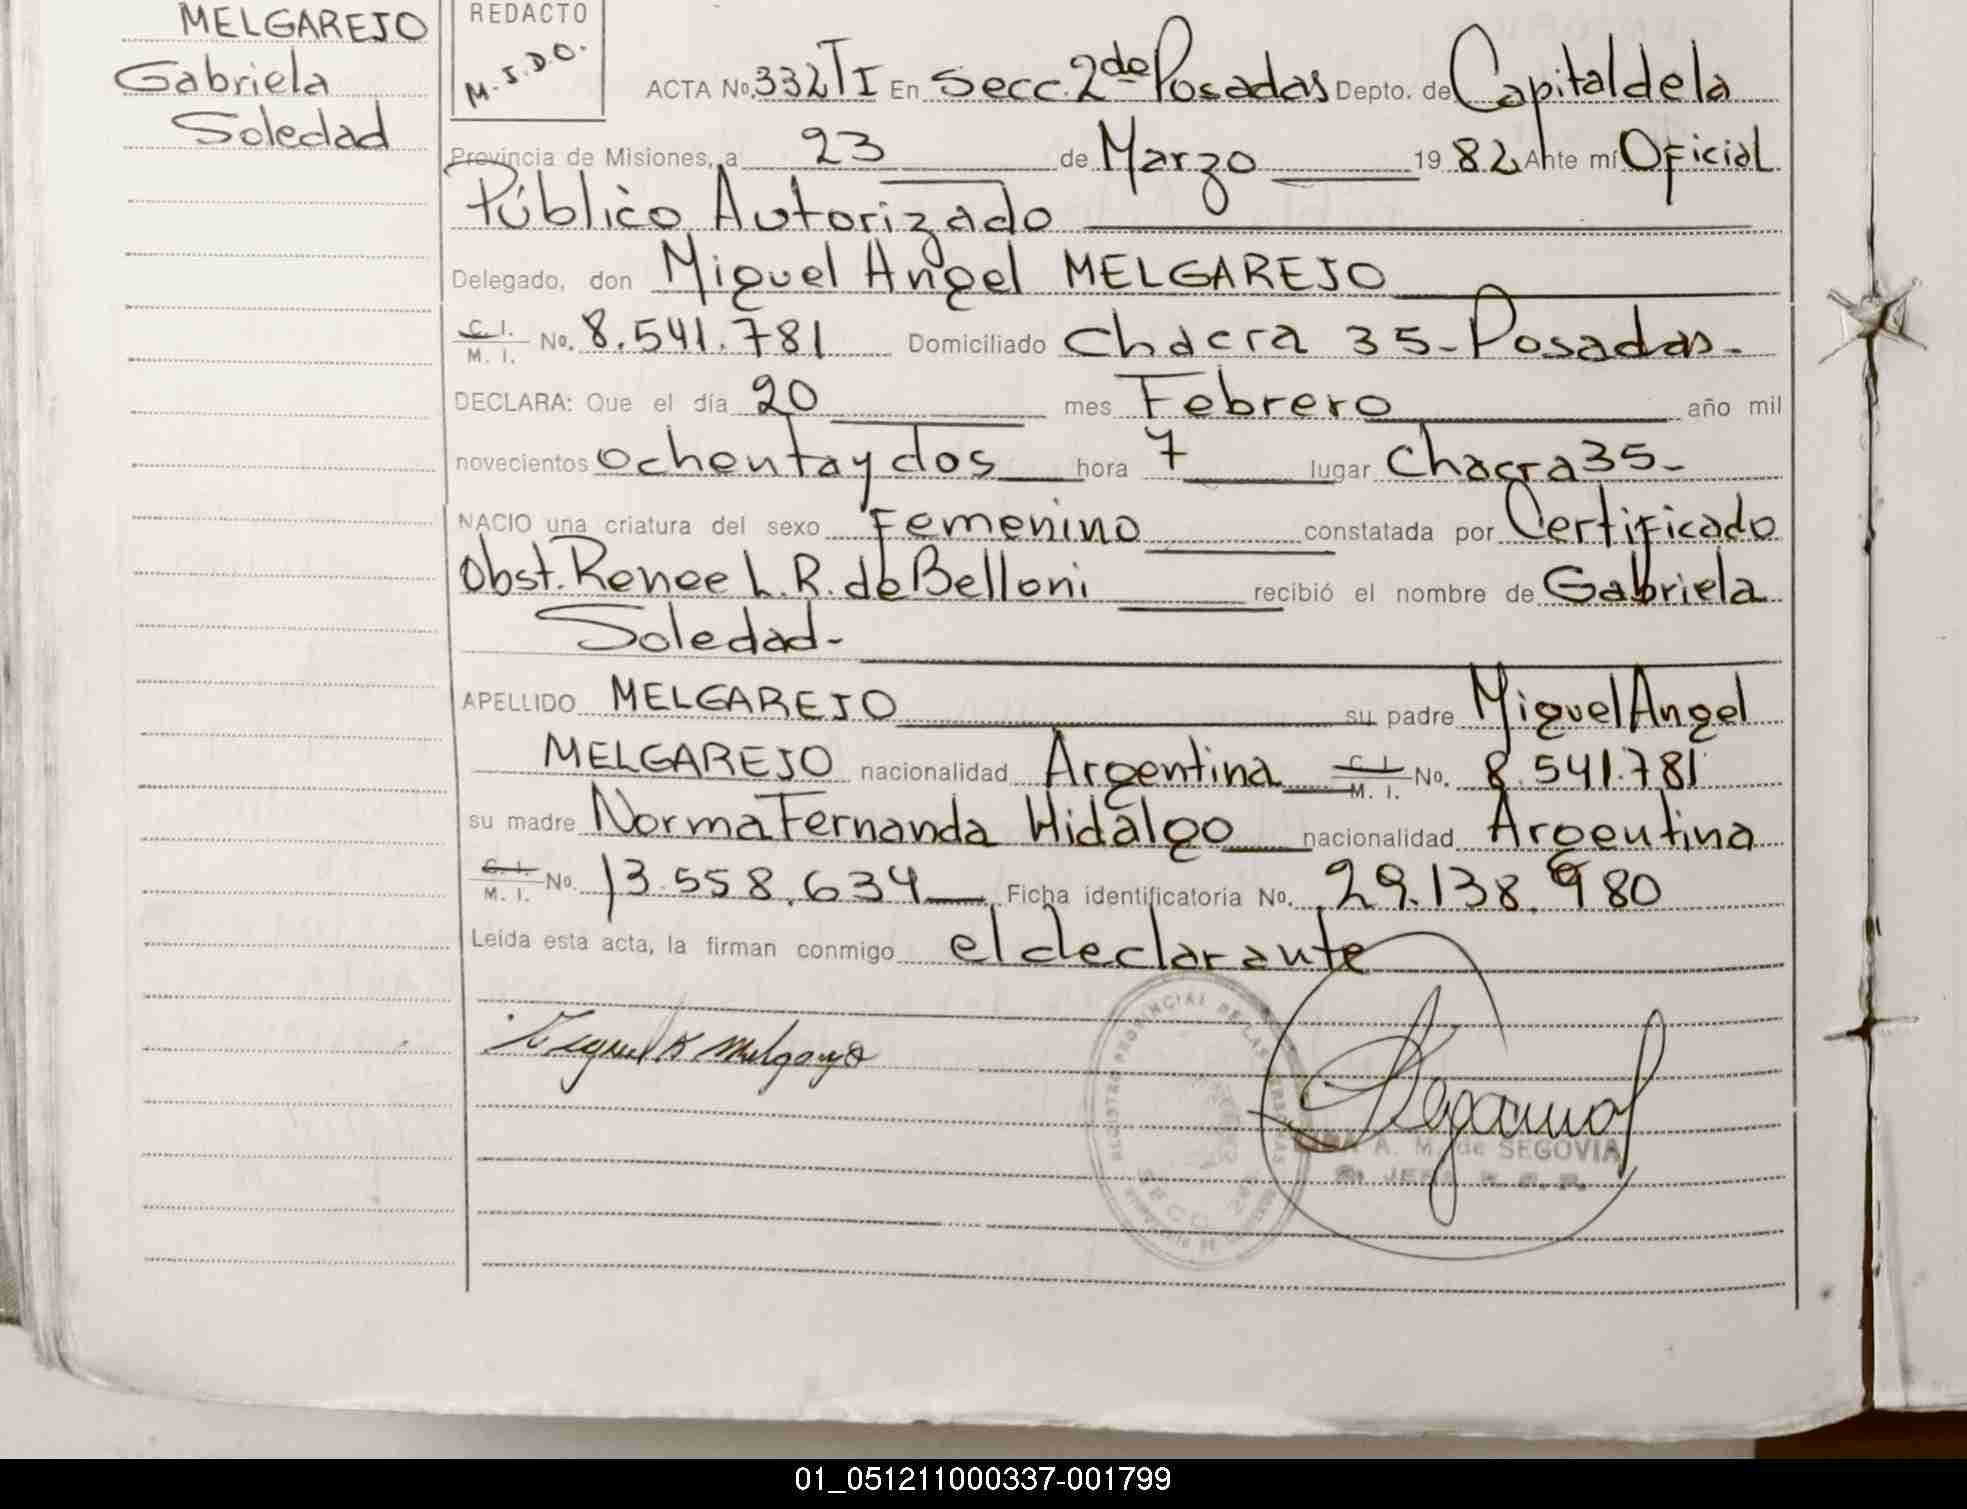 MELGAREJO
Gabriela
Soledad
REDACTO
M.S.D.O.
ACTA No. 332 TI En Secc. 2da Posadas Depto. de Capital de la
Provincia de Misiones, a 23 de Marzo 1982 Ante mí Oficial
Público Autorizado
Delegado, don Miguel Angel MELGAREJO
C. I. / M. I. No. 8.541.781 Domiciliado Chacra 35-Posadas-
DECLARA: Que el día 20 mes Febrero año mil
novecientos ochenta y dos hora 7 lugar Chacra 35-
NACIO una criatura del sexo Femenino constatada por Certificado
Obst. Renee L. R. de Belloni recibió el nombre de Gabriela
Soledad-
APELLIDO MELGAREJO su padre Miguel Angel
MELGAREJO nacionalidad Argentina C. I. / M. I. No. 8.541.781
su madre Norma Fernanda Hidalgo nacionalidad Argentina
C. I. / M. I. No. 13.558.634 Ficha identificatoria No. 29.138.980
Leída esta acta, la firman conmigo el declarante
Miguel A Melgarejo
REGISTRO PROVINCIAL DE LAS PERSONAS
SECC. 2da
A. M. de SEGOVIA
01_051211000337-001799